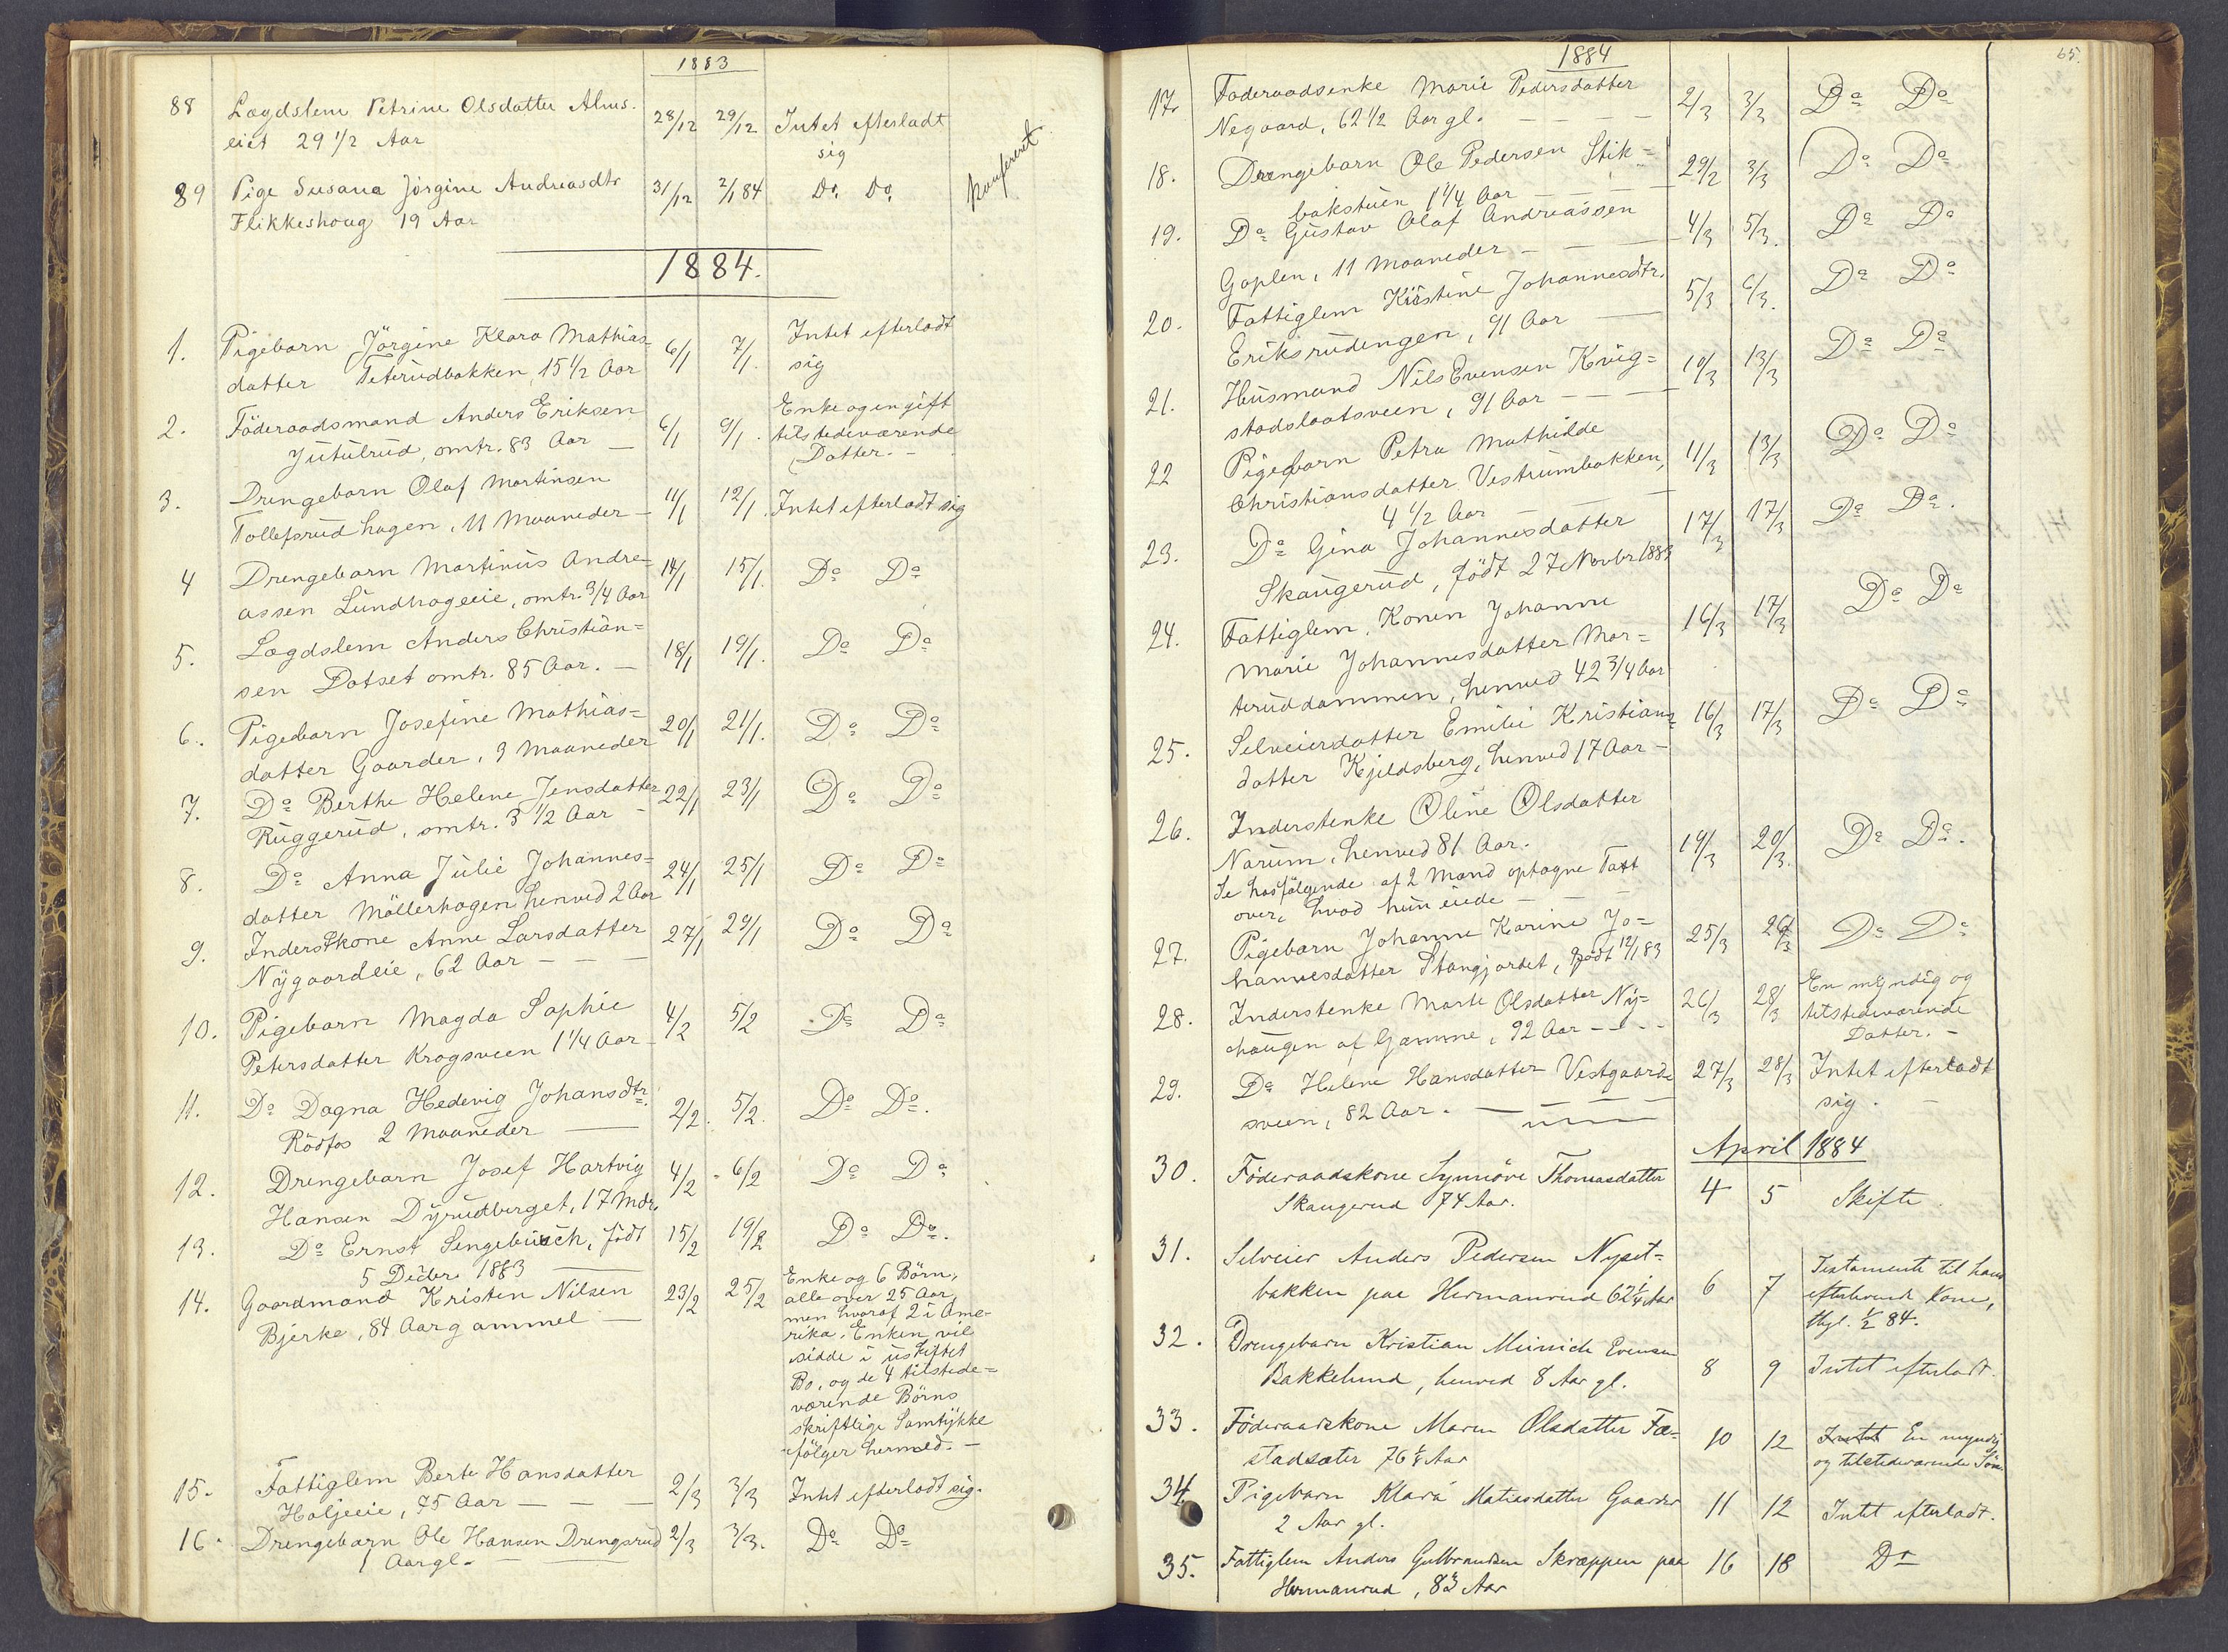 1883
88 Lægdslem Petrine Olsdatter Alms- 28/12 29/12 Intet efterladt
eiet 29 1/2 Aar sig
89 Pige Susana Jörgine Andreasdtr 31/12 2/1 84 Do. Do.
Flikkeshoug 19 Aar
konfereret
1884.
1. Pigebarn Jörgine Klara Mathias- 6/1 7/1. Intet efterladt
datter Teterudbakken, 15 1/2 Aar sig
2. Föderaadsmand Anders Eriksen 6/1 9/1. Enke og en gift
Jutulrud, omtr. 83 Aar — tilstedeværende
Datter. –
3. Drengebarn Olaf Martinsen 11/1 12/1. Intet efterladt sig
Tollefsrudhagen, 11 Maaneder –
4 Drengebarn Martinus Andre= 14/1 15/1. Do Do
assen Lundhageeie, omtr. 3/4 Aar
5. Lægdslem Anders Christian= 18/1 19/1. Do Do
sen Dotset omtr. 85 Aar. —
6. Pigebarn Josefine Mathias= 20/1 21/1. Do Do
datter Gaarder, 3 Maaneder
7. Do Berthe Helene Jensdatter 22/1 23/1 Do Do
Ruggerud, omtr. 3 1/2 Aar –
8. Do Anna Julie Johannes= 24/1 25/1 Do Do
datter Möllerhagen henved 2 Aar
9. Inderstkone Anne Larsdatter 27/1 29/1 Do Do
Nygaardeie, 62 Aar – – –
10. Pigebarn Magda Sophie 4/2 5/2 Do Do
Petersdatter Krogsveen 1 1/4 Aar –
11. Do Dagna Hedevig Johansdtr. 2/2. 5/2. Do Do.
Rödfos 2 Maaneder —
12. Drengebarn Josef Hartvig 4/2 - 6/2 Do Do
Hansen Dyrudberget, 17 Mdr.
13. Do Ernst Sengebusch, födt 15/2 19/2 Do Do.
5 Decbr. 1883
14. Gaardmand Kristen Nilsen 23/2 25/2 Enke og 6 Börn,
Bjerke, 84 Aar gammel — alle over 25 Aar,
men hvoraf 2 i Ame-
rika. Enken vil
sidde i uskiftet
Bo, og de 4 tilstede=
værende Börns
skriftlige Samtykke
fölger hermed. –
15. Fattiglem Berte Hansdatter 2/3 3/3 Intet efterladt sig.
Holjeeie, 75 Aar – – –
16. Drengebarn Ole Hansen Drengsrud 2/3 3/3. Do Do
1 Aar gl. –
65.
1884
17. Föderaadsenke Marie Pedersdatter 2/3 3/3 Do Do
Negaard, 62 1/2 Aar gl. – – – –
18. Drengebarn Ole Pedersen Stik= 29/2 3/3 Do Do
bakstuen 1 1/4 Aar – – –
19. Do Gustav Olaf Andreassen 4/3 5/3. Do Do
Goplen, 11 Maaneder – – –
20. Fattiglem Kirstine Johannesdtr. 5/3 6/3. Do Do
Eriksrudengen, 91 Aar —
21. Husmand Nils Evensen Kvig= 10/3 13/3 Do Do
stadslaatsveen, 91 Aar – – –
22 Pigebarn Petra Mathilde 11/3 13/3 Do Do
Christiansdatter Vestrumbakken,
4 1/2 Aar – –
23. Do Gina Johannesdatter 17/3 17/3 Do Do.
Skaugerud, födt 27 Novbr 1883
24. Fattiglem, Konen Johanne 16/3 17/3 Do Do
Marie Johannesdatter Mar=
teruddammen, henved 42 3/4 Aar
25. Selveierdatter Emilie Kristians= 16/3 17/3 Do Do
datter Kjeldsberg, henved 17 Aar –
26. Inderstenke Oline Olsdatter 19/3 20/3. Do Do.
Narum, henved 81 Aar.
Se hosfölgende af 2 Mand optagne Taxt
over, hvad hun eiede – – –
27. Pigebarn Johanne Karine Jo= 25/3 26/3 Do Do
hannesdatter Stangjordet, födt 12/1 83
28. Inderstenke Marte Olsdatter Ny= 26/3 28/3 En myndig og
haugen af Gamme, 92 Aar – – – tilstedeværende
Datter. –
29. Do Helene Hansdatter Vestgaards 27/3 28/3 Intet efterladt
sveen, 82 Aar. – – – – sig. –
April 1884
30. Föderaadskone Synnöve Thomasdatter 4 5 Skifte
Skaugerud 74 Aar.
31. Selveier Anders Pedersen Nyset= 6 7 Testamente til hans
bakken paa Hermanrud 62 1/4 Aar efterlevende Kone,
thgl. 1/2 84.
32. Drengebarn Kristian Meinich Evensen 8 9 Intet efterladt.
Bakkelund, henved 8 Aar gl.
33. Föderaadskone Maren Olsdatter Fæ= 10 12 Intet En myndig
stadsæter 76 1/2 Aar og tilstedeværende Sön.
34. Pigebarn Klara Matiasdatter Gaarder 11 12 Intet efterladt.
2 Aar gl.
35. Fattiglem Anders Gulbrandsen Skræppen paa 16 18 Do
Hermanrud, 83 Aar